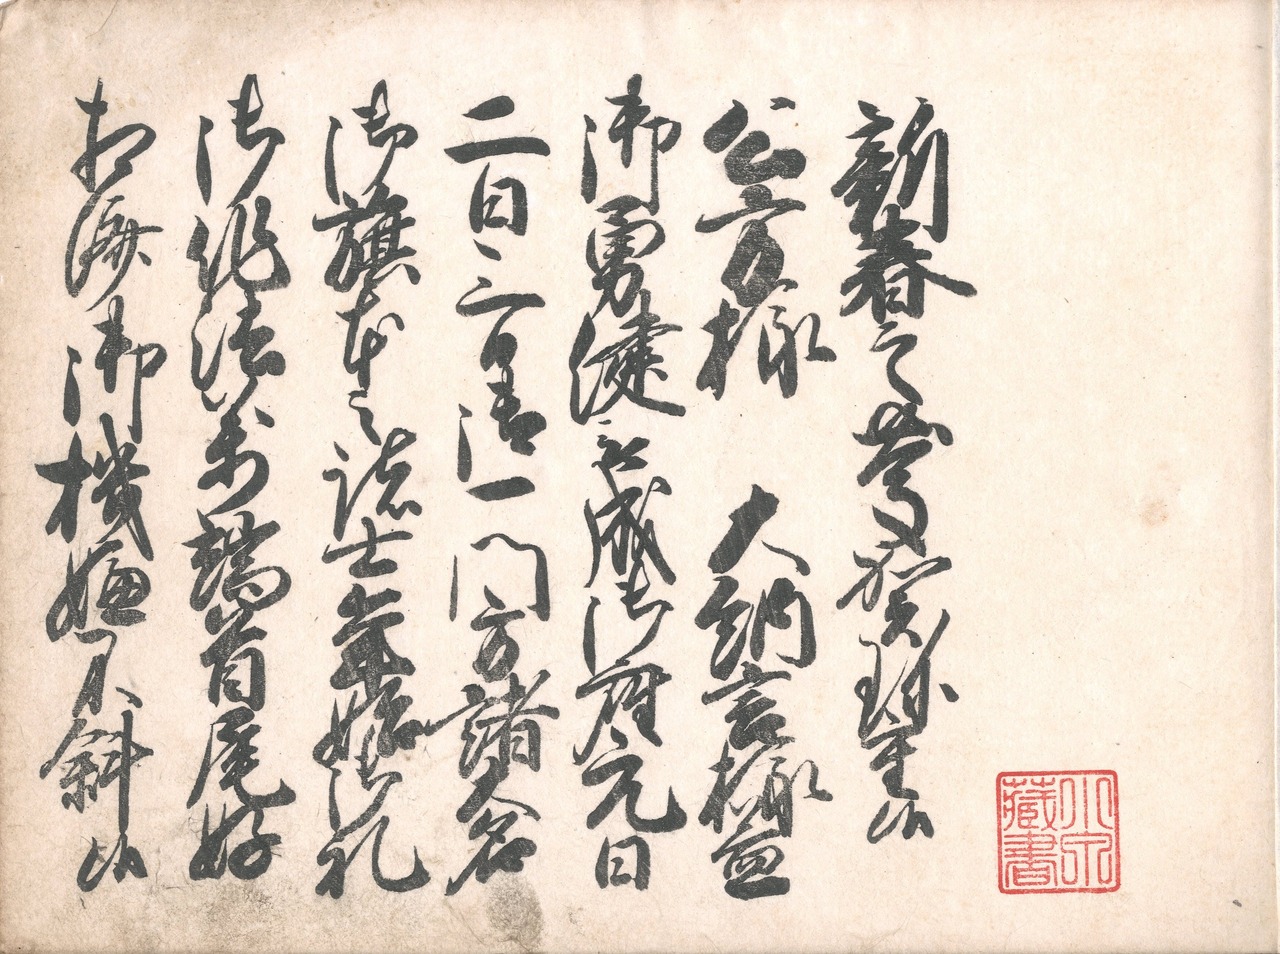 新春之御慶賀珍重候
公方様 大納言様益
御勇健被成御座元日
二日三日御一門方諸大名
御旗本之諸士年始御礼
御作法万端首尾好
相済御機嫌不斜候
藏書